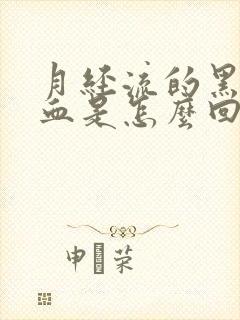 月经流的黑
血是怎麽回
申荣